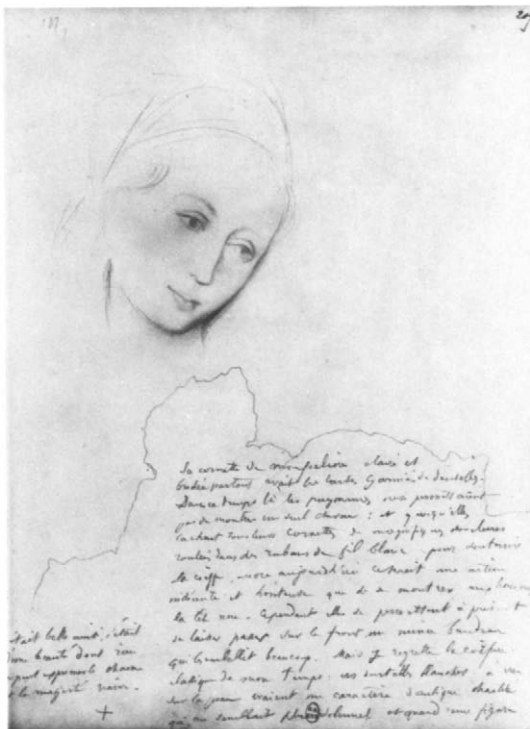 Sa cornette de mousseline claire et
brodée partout avait les barbes garnies de dentelles.
Dans ce temps là les paysannes ne se permettaient
pas de montrer un seul cheveu ; et quoiqu'elles
cachent sous leurs cornettes de magnifiques chevelures
roulées dans des rubans de fil blanc pour soutenir
la coiffe, encore aujourd'hui ce serait une action
indécente et honteuse que de se montrer aux hommes
la tête nue. Cependant elles se permettent à présent
de laisser passer sur le front un mince bandeau
qui les embellit beaucoup. Mais je regrette la coiffure
classique de mon temps. ces dentelles blanches à cru
sur la peau avaient un caractère d'antique chasteté
qui me semblait plus solennel et quand une figure
était belle ainsi, c'était
d'une beauté dont rien
ne peut exprimer le charme
et la majesté naïve.
+